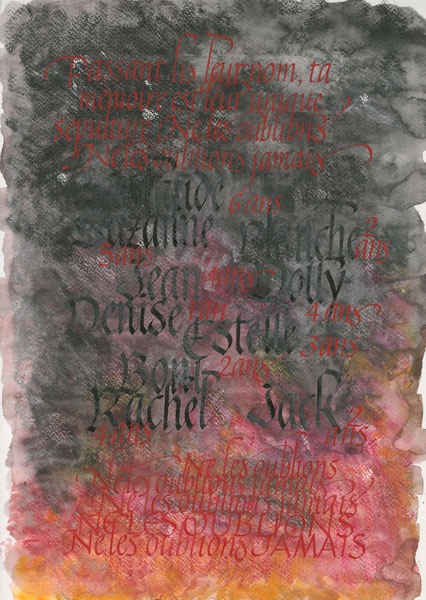 Passant lis leur nom, ta
mémoire est leur unique
sépulture. Ne les oublions
Ne les oublions jamais
6 ans
Suzanne Blanche 2
5 ans ans
Jean 4 ans Dolly
Denise 1 an 4 ans
Estelle 3 ans
2 ans
Rachel Jack 2
4 ans ans
Ne les oublions
Ne les oublions jamais
Ne les oublions jamais
NE LES OUBLIONS
Ne les oublions JAMAIS